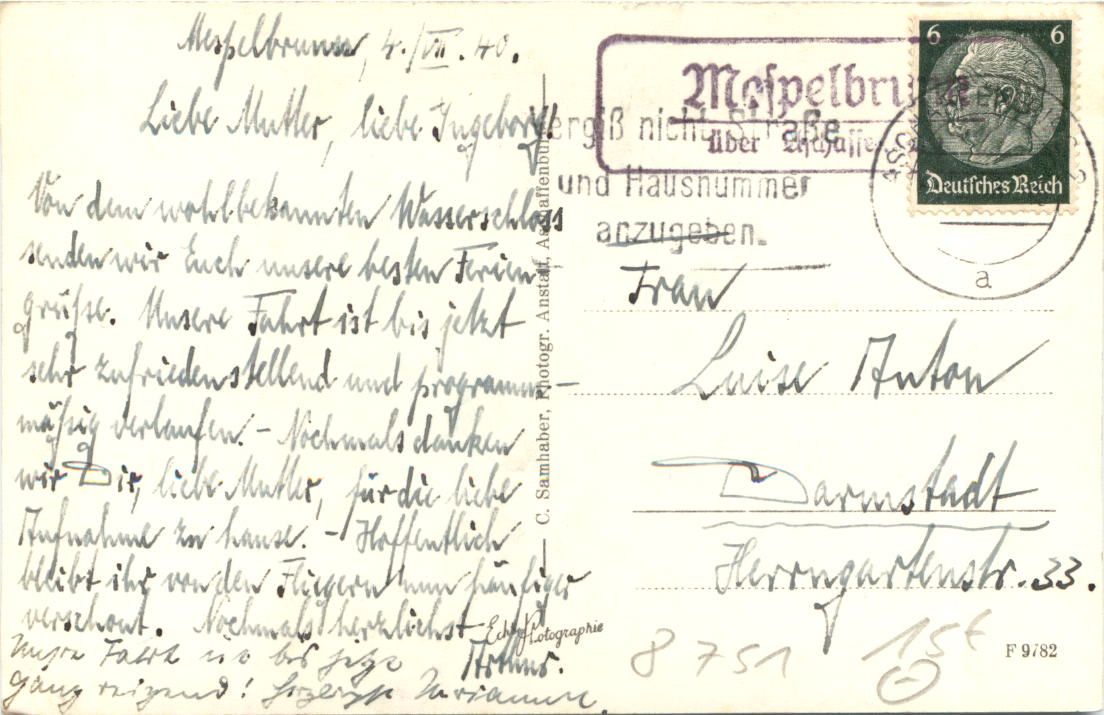 Mespelbrunn, 4./VII.40.
Liebe Mutter, liebe Ingeborg!
Von dem wohlbekannten Wasserschloss
senden wir Euch unsere besten Ferien-
grüße. Unsere Fahrt ist bis jetzt
sehr zufriedenstellend und programm-
mäßig verlaufen. – Nochmals danken
wir Dir, liebe Mutter, für die liebe
Aufnahme zu hause. – Hoffentlich
bleibt ihr von den Fliegern nun häufiger
verschont. Nochmals herzlichst
Unsre Fahrt ist bis jetzt
ganz reizend! Marianne.
C. Samhaber, Photogr. Anstalt, Aschaffenburg
Echte Photographie
Mespelbrunn
über Aschaffe
Vergiß nicht Straße
und Hausnummer
anzugeben.
6 6
Deutsches Reich
a
Frau
Luise Anton
Darmstadt
Herrngartenstr. 33.
8751
15€
F 9782